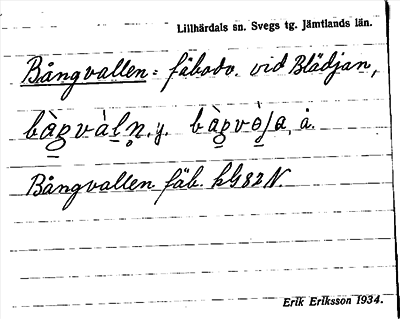 Lillhärdals sn. Svegs tg. Jämtlands län.
Bångvallen = fäbodv. vid Blädjan,
y. å.
Bångvallen fäb. kG82N.
Erik Eriksson 1934.